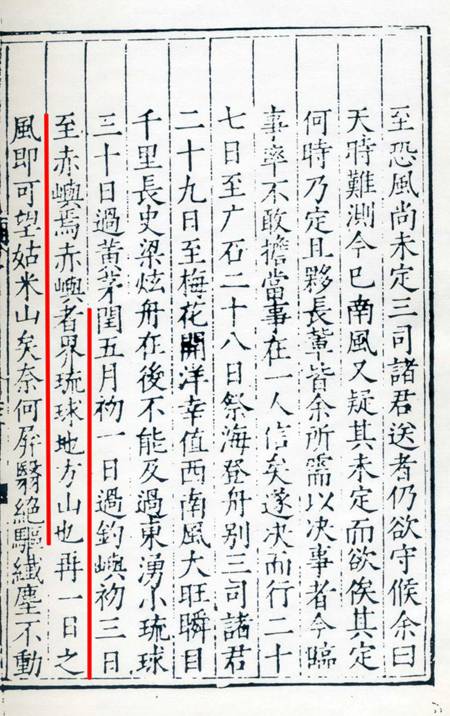 至恐風尚未定三司諸君送者仍欲守候余曰
天時難測今已南風又疑其未定而欲俟其定
何時乃定且夥長輩皆余所需以决事者今臨
事率不敢擔當事在一人信矣遂决而行二十
七日至广石二十八日祭海登舟别三司諸君
二十九日至梅花開洋幸值西南風大旺瞬目
千里長史梁炫舟在後不能及過東湧小琉球
三十日過黄茅閏五月初一日過釣嶼初三日
至赤嶼焉赤嶼者界琉球地方山也再一日之
風即可望姑米山矣奈何屏翳絶驅纎塵不動